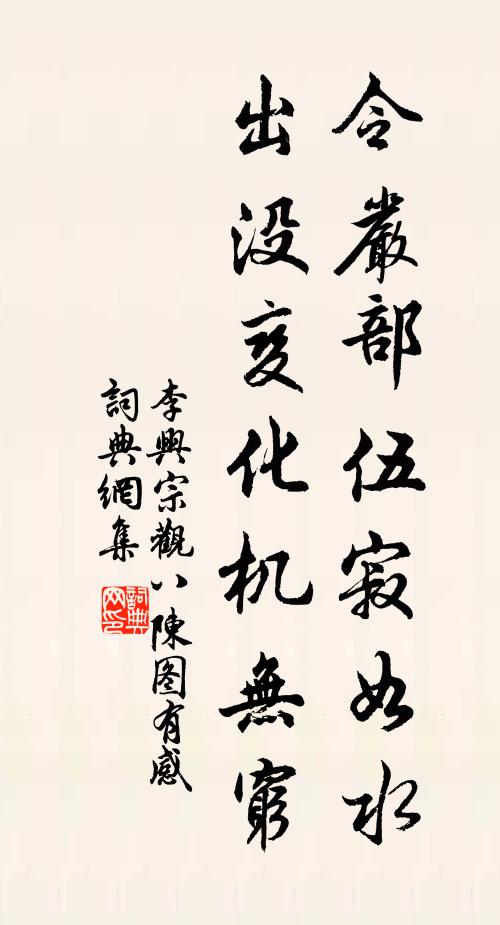 令嚴部伍寂如水
出没变化机無窮
李興宗觀八陳图有感
詞典網集
詞典
网印